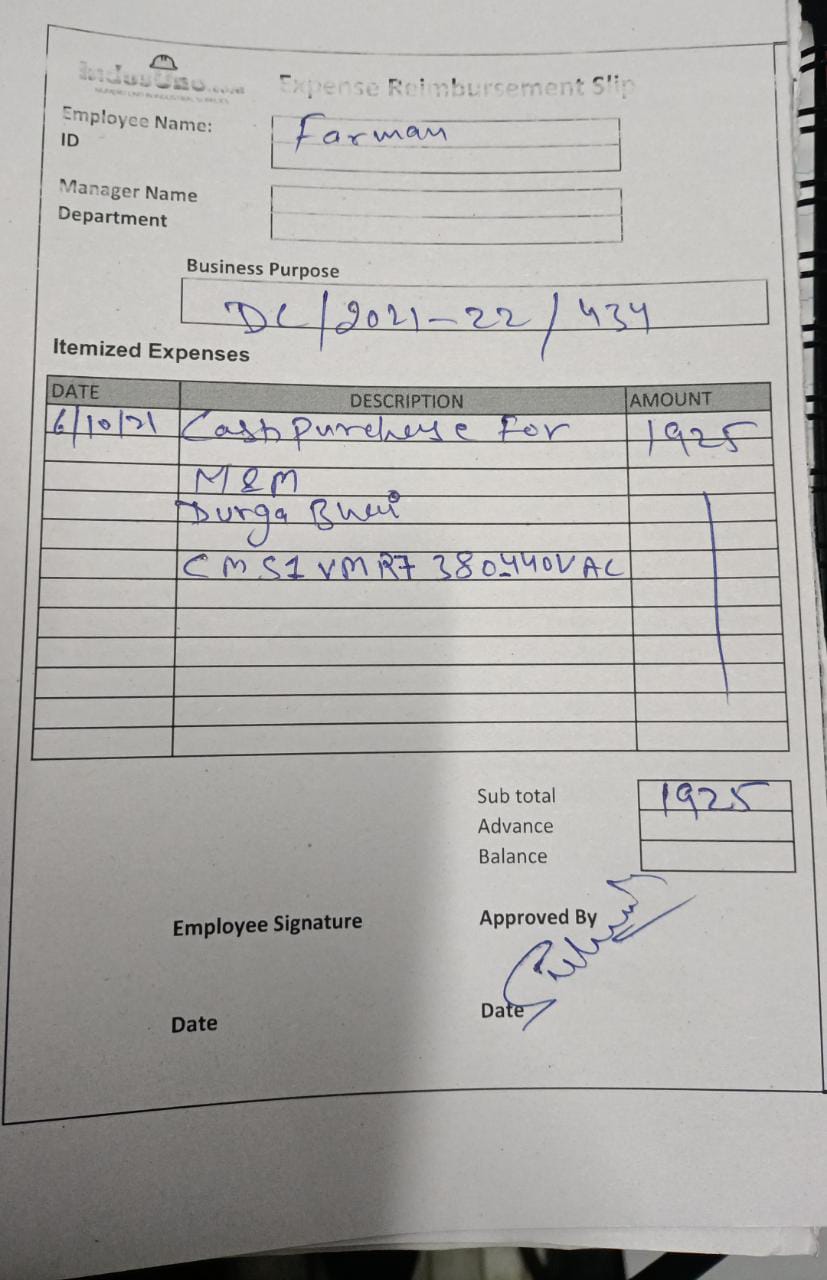 IndusUno.com
Expense Reimbursement Slip
Employee Name: Farman
ID
Manager Name
Department
Business Purpose
DC/2021-22/434
Itemized Expenses
DATE DESCRIPTION AMOUNT
6/10/21 Cash purchese For 1925
M&M
Durga Bhai
CMS1 VMR7 380440VAC
Sub total 1925
Advance
Balance
Employee Signature Approved By
Date Date